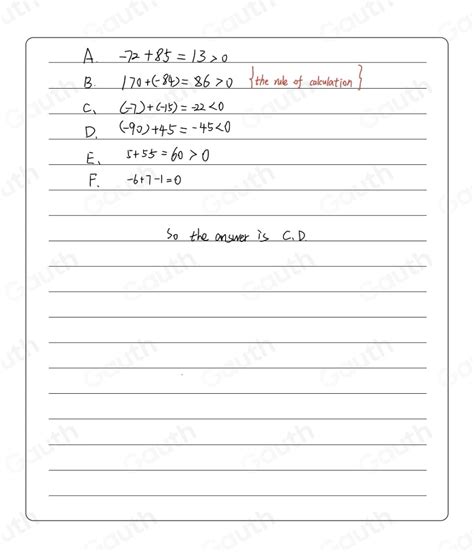 A. -72+85=13>0
B. 170+(-84)=86>0 {the rule of calculation}
C、 (-7)+(-15)=-22<0
D. (-90)+45=-45<0
E、 5+55=60>0
F. -6+7-1=0
So the answer is C.D.